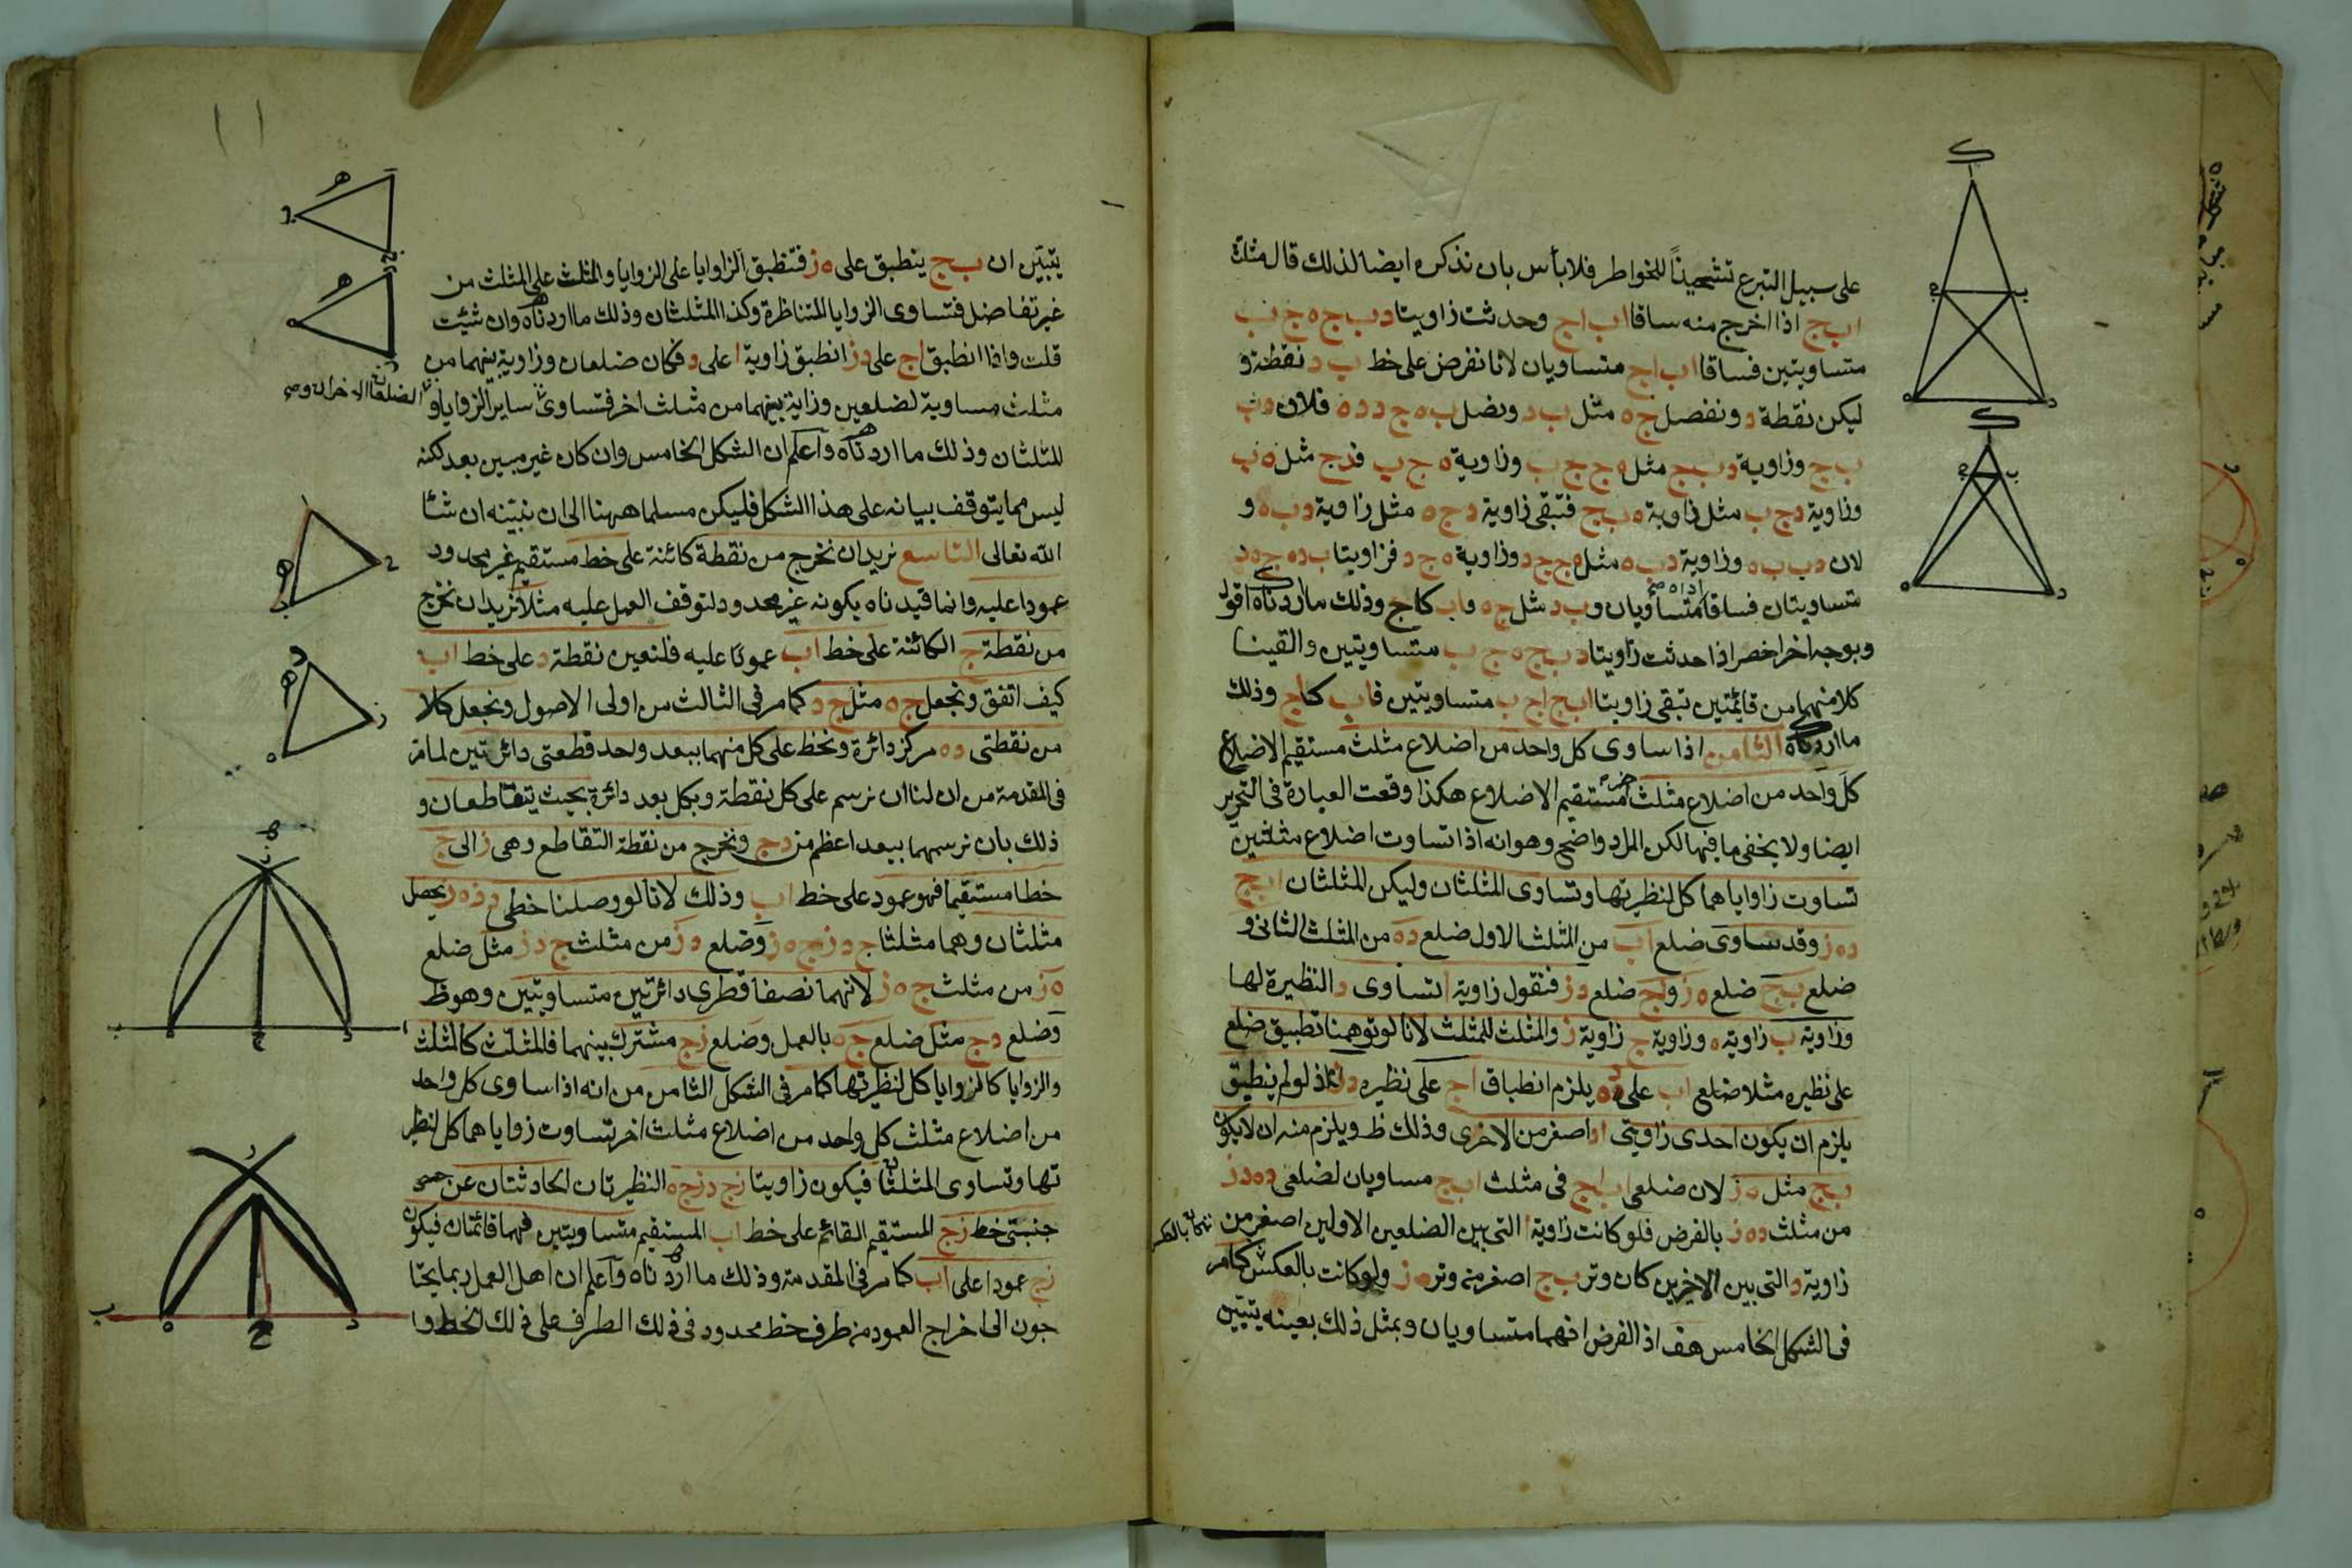 على سبيل التبرع تشحيذاً للخواطر فلا بأس بان نذكره ايضا لذلك قال مثلث
ا ب ج اذا اخرج منه ساقا ا ب ا ج وحدثت زاويتا د ب ج ه ج ب
متساويتين فساقا ا ب ا ج متساويان لانا نفرض على خط ب د نقطة و
ليكن نقطة د ونفصل ج ه مثل ب د ونصل ب ه ج د د ه فلان د ب
ب ج وزاوية د ب ج مثل ه ج ج ب وزاوية ه ج ب فدج مثل ه ب
وزاوية د ج ب مثل زاوية ه ب ج فتبقى زاوية د ج ه مثل زاوية د ب ه و
لان د ب ب ه وزاوية د ب ه مثل ه ج ج د وزاوية ه ج د فزاويتا ب د ه ج ه د
متساويتان فساقا ا د ا ه متساويان و ب د مثل ج ه و ا ب كاج وذلك ما اردناه اقول
وبوجه اخر اخصر اذا حدثت زاويتا د ب ج ه ج ب متساويتين والقينا
كلا منهما من قايمتين تبقى زاويتا ا ب ج ا ج ب متساويتين فاب كاج وذلك
ما اردناه الثامن اذا ساوى كل واحد من اضلاع مثلث مستقيم الاضلاع
كل واحد من اضلاع مثلث اخر مستقيم الاضلاع هكذا وقعت العبارة في التحرير
ايضا ولا يخفى ما فيها لكن المراد واضح وهو انه اذا تساوت اضلاع مثلثين
تساوت زاواياهما كل لنظيرتها وتساوى المثلثان وليكن المثلثان ا ب ج
د ه ز وقد ساوى ضلع ا ب من المثلث الاول ضلع د ه من المثلث الثاني و
ضلع ب ج ضلع ه ز و ا ج ضلع د ز فنقول زاوية ا تساوى د النظيرة لها
وزاوية ب زاوية ه وزاوية ج زاوية ز والمثلث للمثلث لانا لو توهمنا تطبيق ضلع
على نظيره مثلا ضلع ا ب على د ه يلزم انطباق ا ج على نظيره د ز اذ لو لم ينطبق
يلزم ان يكون احدى زاويتي ا د اصغر من الاخرى وذلك ظ ويلزم منه ان لا يكون
ب ج مثل ه ز لان ضلعى ا ب ا ج في مثلث ا ب ج مساويان لضلعى د ه د ز
من مثلث د ه ز بالفرض فلو كانت زاوية ا التي بين الضلعين الاولين اصغر من
زاوية د التي بين الاخيرين كان وتر ب ج اصغر من وتر ه ز ولو كانت بالعكس كما مر
في الشكل الخامس هف اذ الفرض انهما متساويان وبمثل ذلك بعينه يتبين
يتبين ان ب ج ينطبق على ه ز فتنطبق الزاوايا على الزوايا والمثلث على المثلث من
غير تفاضل فتساوى الزوايا المتناظرة وكذا المثلثان وذلك ما اردناه وان شئت
قلت واذا انطبق ا ج على د ز انطبق زاوية ا على د فكان ضلعان وزاوية بينهما من
مثلث مساوية لضلعين وزاية بينهما من مثلث اخر فتساوى الضلعان الاخران وصح ساير الزوايا و
المثلثان وذلك ما اردناه واعلم ان الشكل الخامس وان كان غير مبين بعد لكنه
ليس مما يتوقف بيانه على هذا الشكل فليكن مسلما ههنا الى ان نبينه ان شا
الله تعالى التاسع نريد ان نخرج من نقطة كائنة على خط مستقيم غير محدود
عمودا عليه وانما قيدناه بكونه غير محدود لتوقف العمل عليه مثلا نريد ان نخرج
من نقطة ج الكائنة على خط ا ب عمودا عليه فلنعين نقطة د على خط ا ب
كيف اتفق ونجعل ج ه مثل ج د كما مر في الثالث من اولى الاصول ونجعل كلا
من نقطتي د ه مركز دائرة ونخط على كل منهما ببعد واحد قطعتي دائرتين لما مر
في المقدمة من ان لنا ان نرسم على كل نقطة وبكل بعد دائرة بحيث يتقاطعان و
ذلك بان نرسمهما ببعد اعظم من د ج ونخرج من نقطة التقاطع وهي ز الى ج
خطا مستقيما فهو عمود على خط ا ب وذلك لانا لو وصلنا خطي د ز ه ز يحصل
مثلثان وهما مثلثا ج د ز ج ه ز وضلع د ز من مثلث ج د ز مثل ضلع
ه ز من مثلث ج ه ز لانهما نصفا قطرى دائرتين متساويتين وهو ظ
وضلع د ج مثل ضلع ج ه بالعمل وضلع ز ج مشترك بينهما فالمثلث كالمثلث
والزوايا كالزوايا كل لنظيرتها كما مر في الشكل الثامن من انه اذا ساوى كل واحد
من اضلاع مثلث كل واحد من اضلاع مثلث اخر تساوت زواياهما كل لنظير
تها وتساوى المثلثان فيكون زاويتا ز ج د ز ج ه النظيرتان الحادثتان عن
جنبتي خط ز ج المستقيم القائم على خط ا ب المستقيم متساويتين فهما قائمتان فيكون
ز ج عمودا على ا ب كما مر في المقدمة وذلك ما اردناه واعلم ان اهل العمل ربما يحتا
جون الى اخراج العمود من طرف خط محدود في ذلك الطرف على ذلك الخط وا